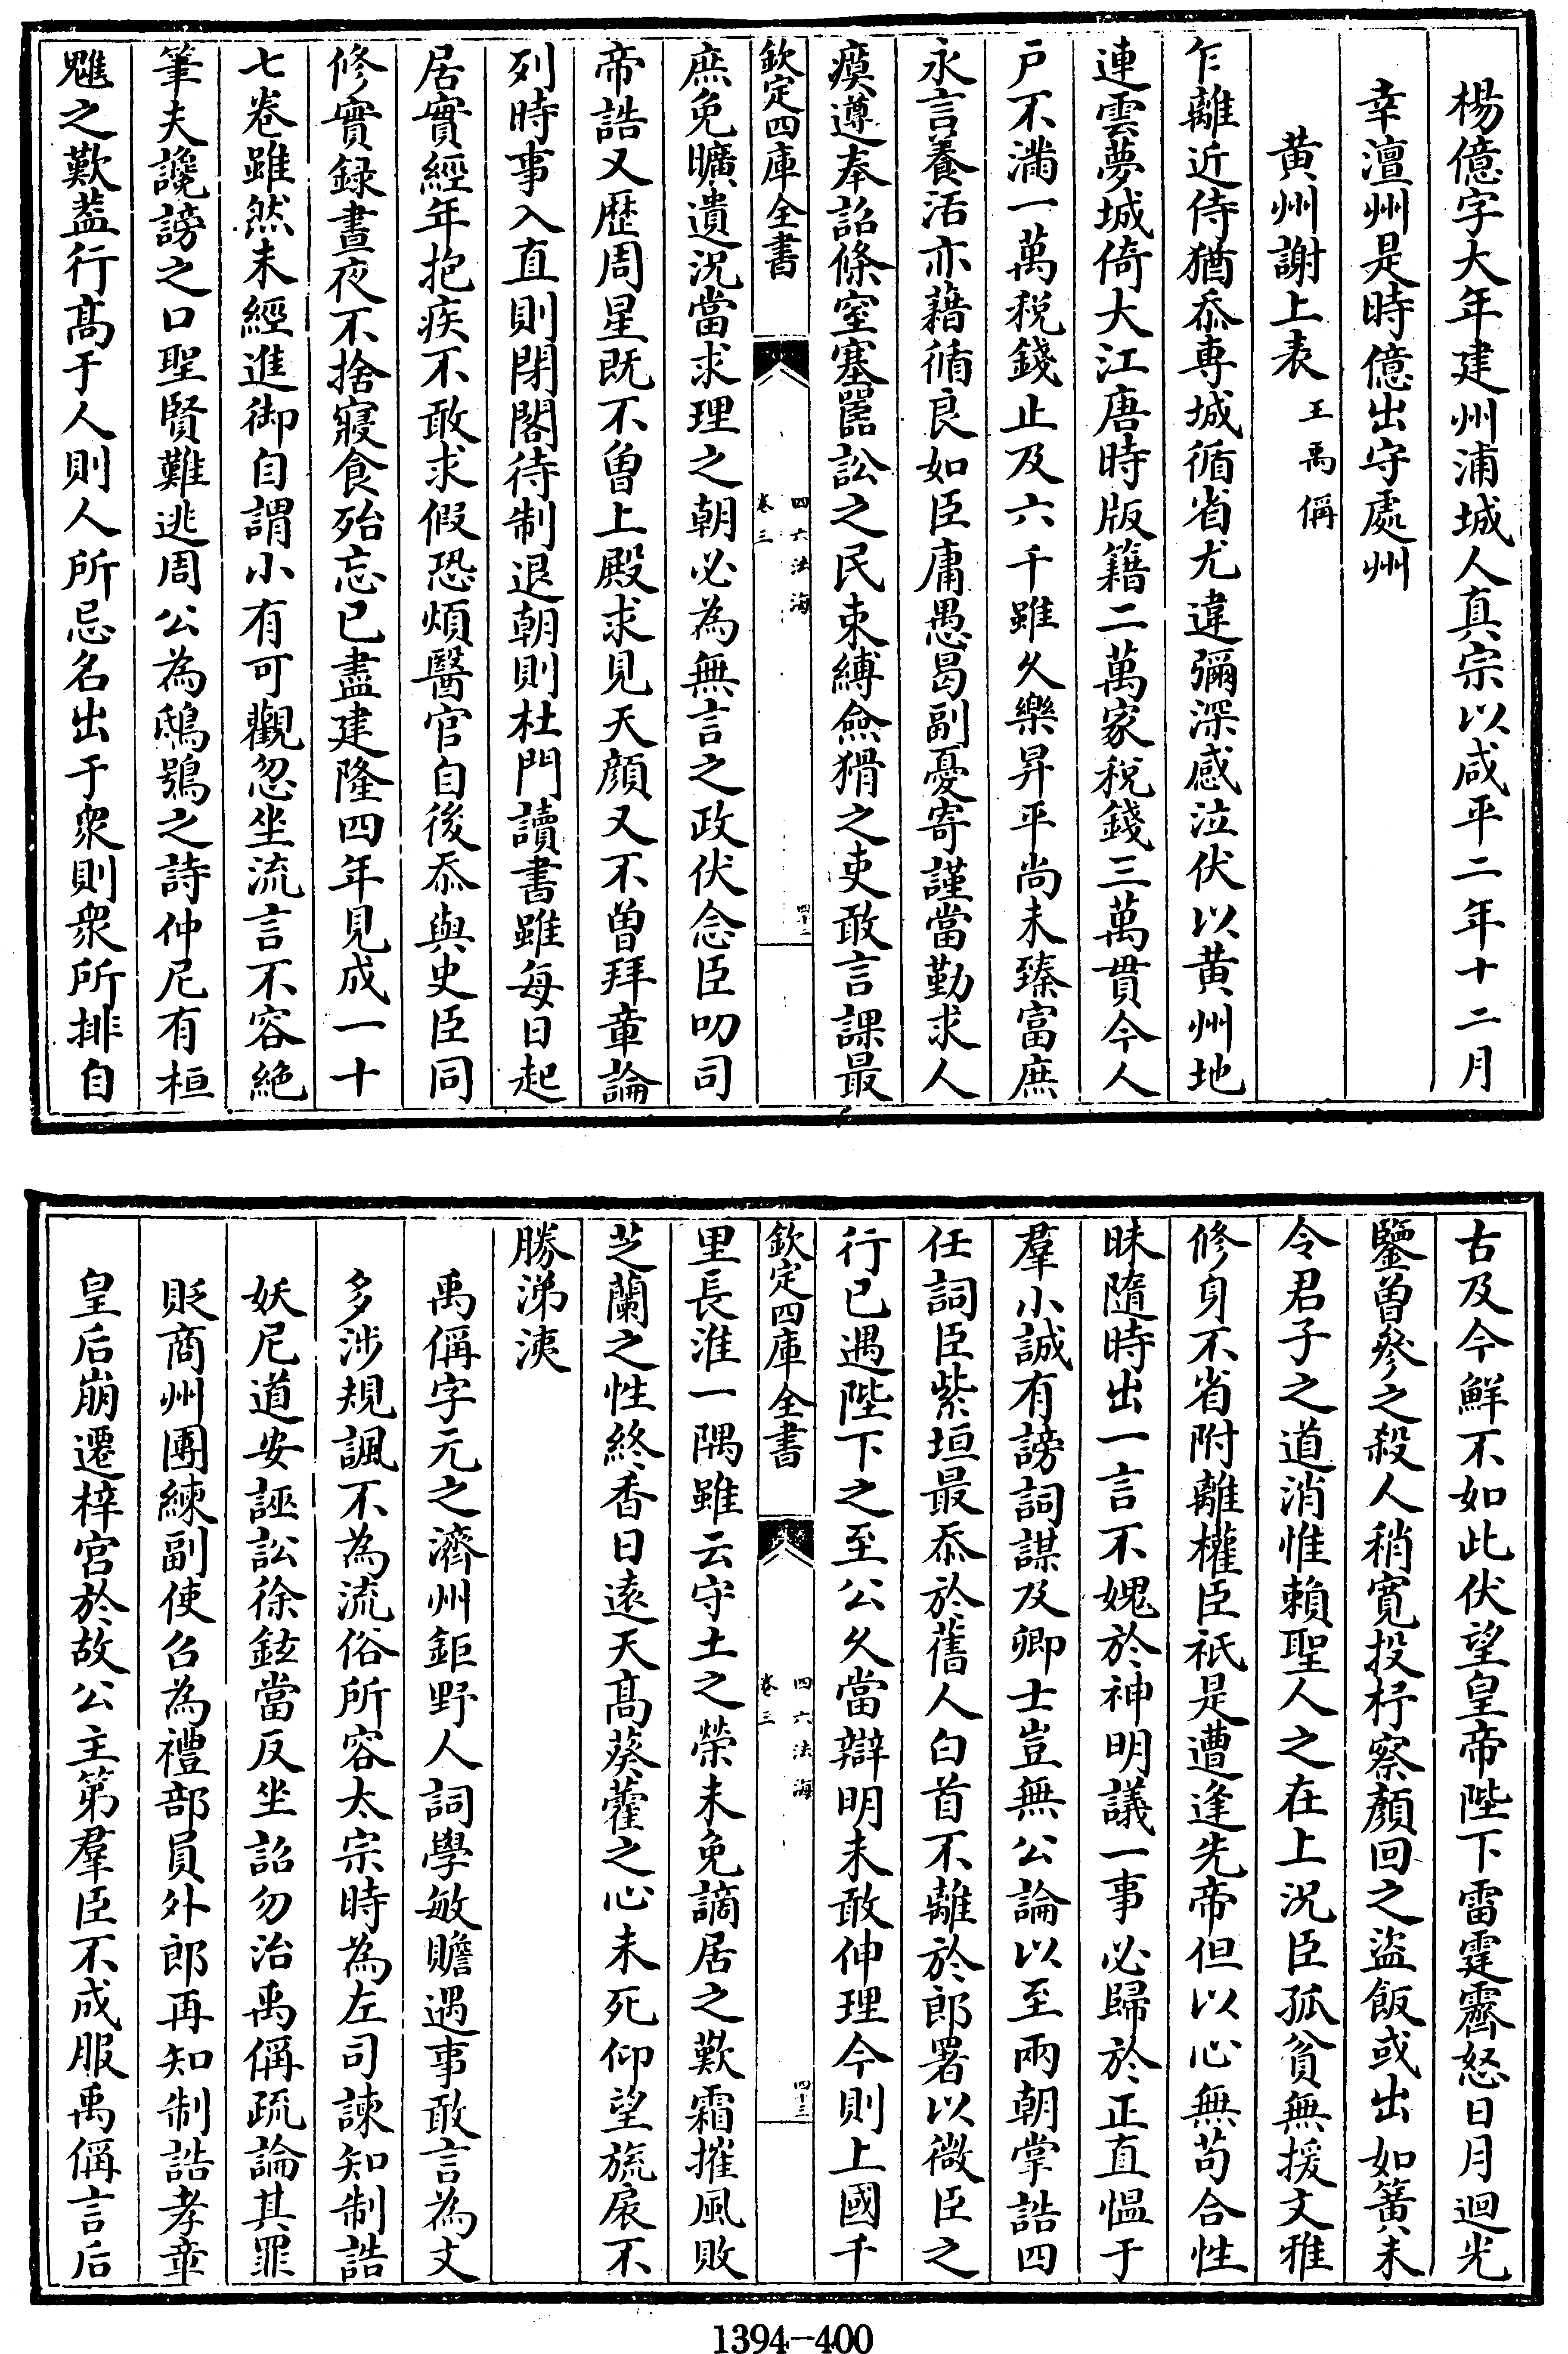 楊億字大年建州浦城人真宗以咸平二年十二月
幸澶州是時億出守處州
黄州謝上表 王禹偁
乍離近侍猶忝專城循省尤違彌深感泣伏以黄州地
連雲夢城倚大江唐時版籍二萬家稅錢三萬貫今人
户不滿一萬稅錢止及六千雖久樂昇平尚未臻富庶
永言養活亦藉循良如臣庸愚曷副憂寄謹當勤求人
瘼遵奉詔條窒塞嚚訟之民束縛憸猾之吏敢言課最
欽定四庫全書
四六法海
卷三
四十二
庶免曠遺況當求理之朝必為無言之政伏念臣叨司
帝誥又歴周星既不曾上殿求見天顔又不曾拜章論
列時事入直則閉閤待制退朝則杜門讀書雖每日起
居實經年抱疾不敢求假恐煩醫官自後忝與史臣同
修實録晝夜不捨寢食殆忘已盡建隆四年見成一十
七卷雖然未經進御自謂小有可觀忽坐流言不容絶
筆夫讒謗之口聖賢難逃周公為鴟鴞之詩仲尼有桓
魋之歎葢行髙于人則人所忌名出于衆則衆所排自
古及今鮮不如此伏望皇帝陛下雷霆霽怒日月迴光
鑒曾參之殺人稍寛投杼察顔回之盜飯或出如簧未
令君子之道消惟賴聖人之在上況臣孤貧無援文雅
修身不省附離權臣祇是遭逢先帝但以心無苟合性
昧隨時出一言不媿於神明議一事必歸於正直慍于
羣小誠有謗詞謀及卿士豈無公論以至兩朝掌誥四
任詞臣紫垣最忝於舊人白首不離於郎署以微臣之
行已遇陛下之至公久當辯明未敢伸理今則上國千
欽定四庫全書
四六法海
卷三
四十三
里長淮一隅雖云守土之榮未免謫居之歎霜摧風敗
芝蘭之性終香日逺天髙葵藿之心未死仰望旒扆不
勝涕洟
禹偁字元之濟州鉅野人詞學敏贍遇事敢言為文
多涉規諷不為流俗所容太宗時為左司諫知制誥
妖尼道安誣訟徐鉉當反坐詔勿治禹偁疏論其罪
貶商州團練副使召為禮部員外郎再知制誥孝章
皇后崩遷梓宫於故公主第羣臣不成服禹偁言后
1394-400